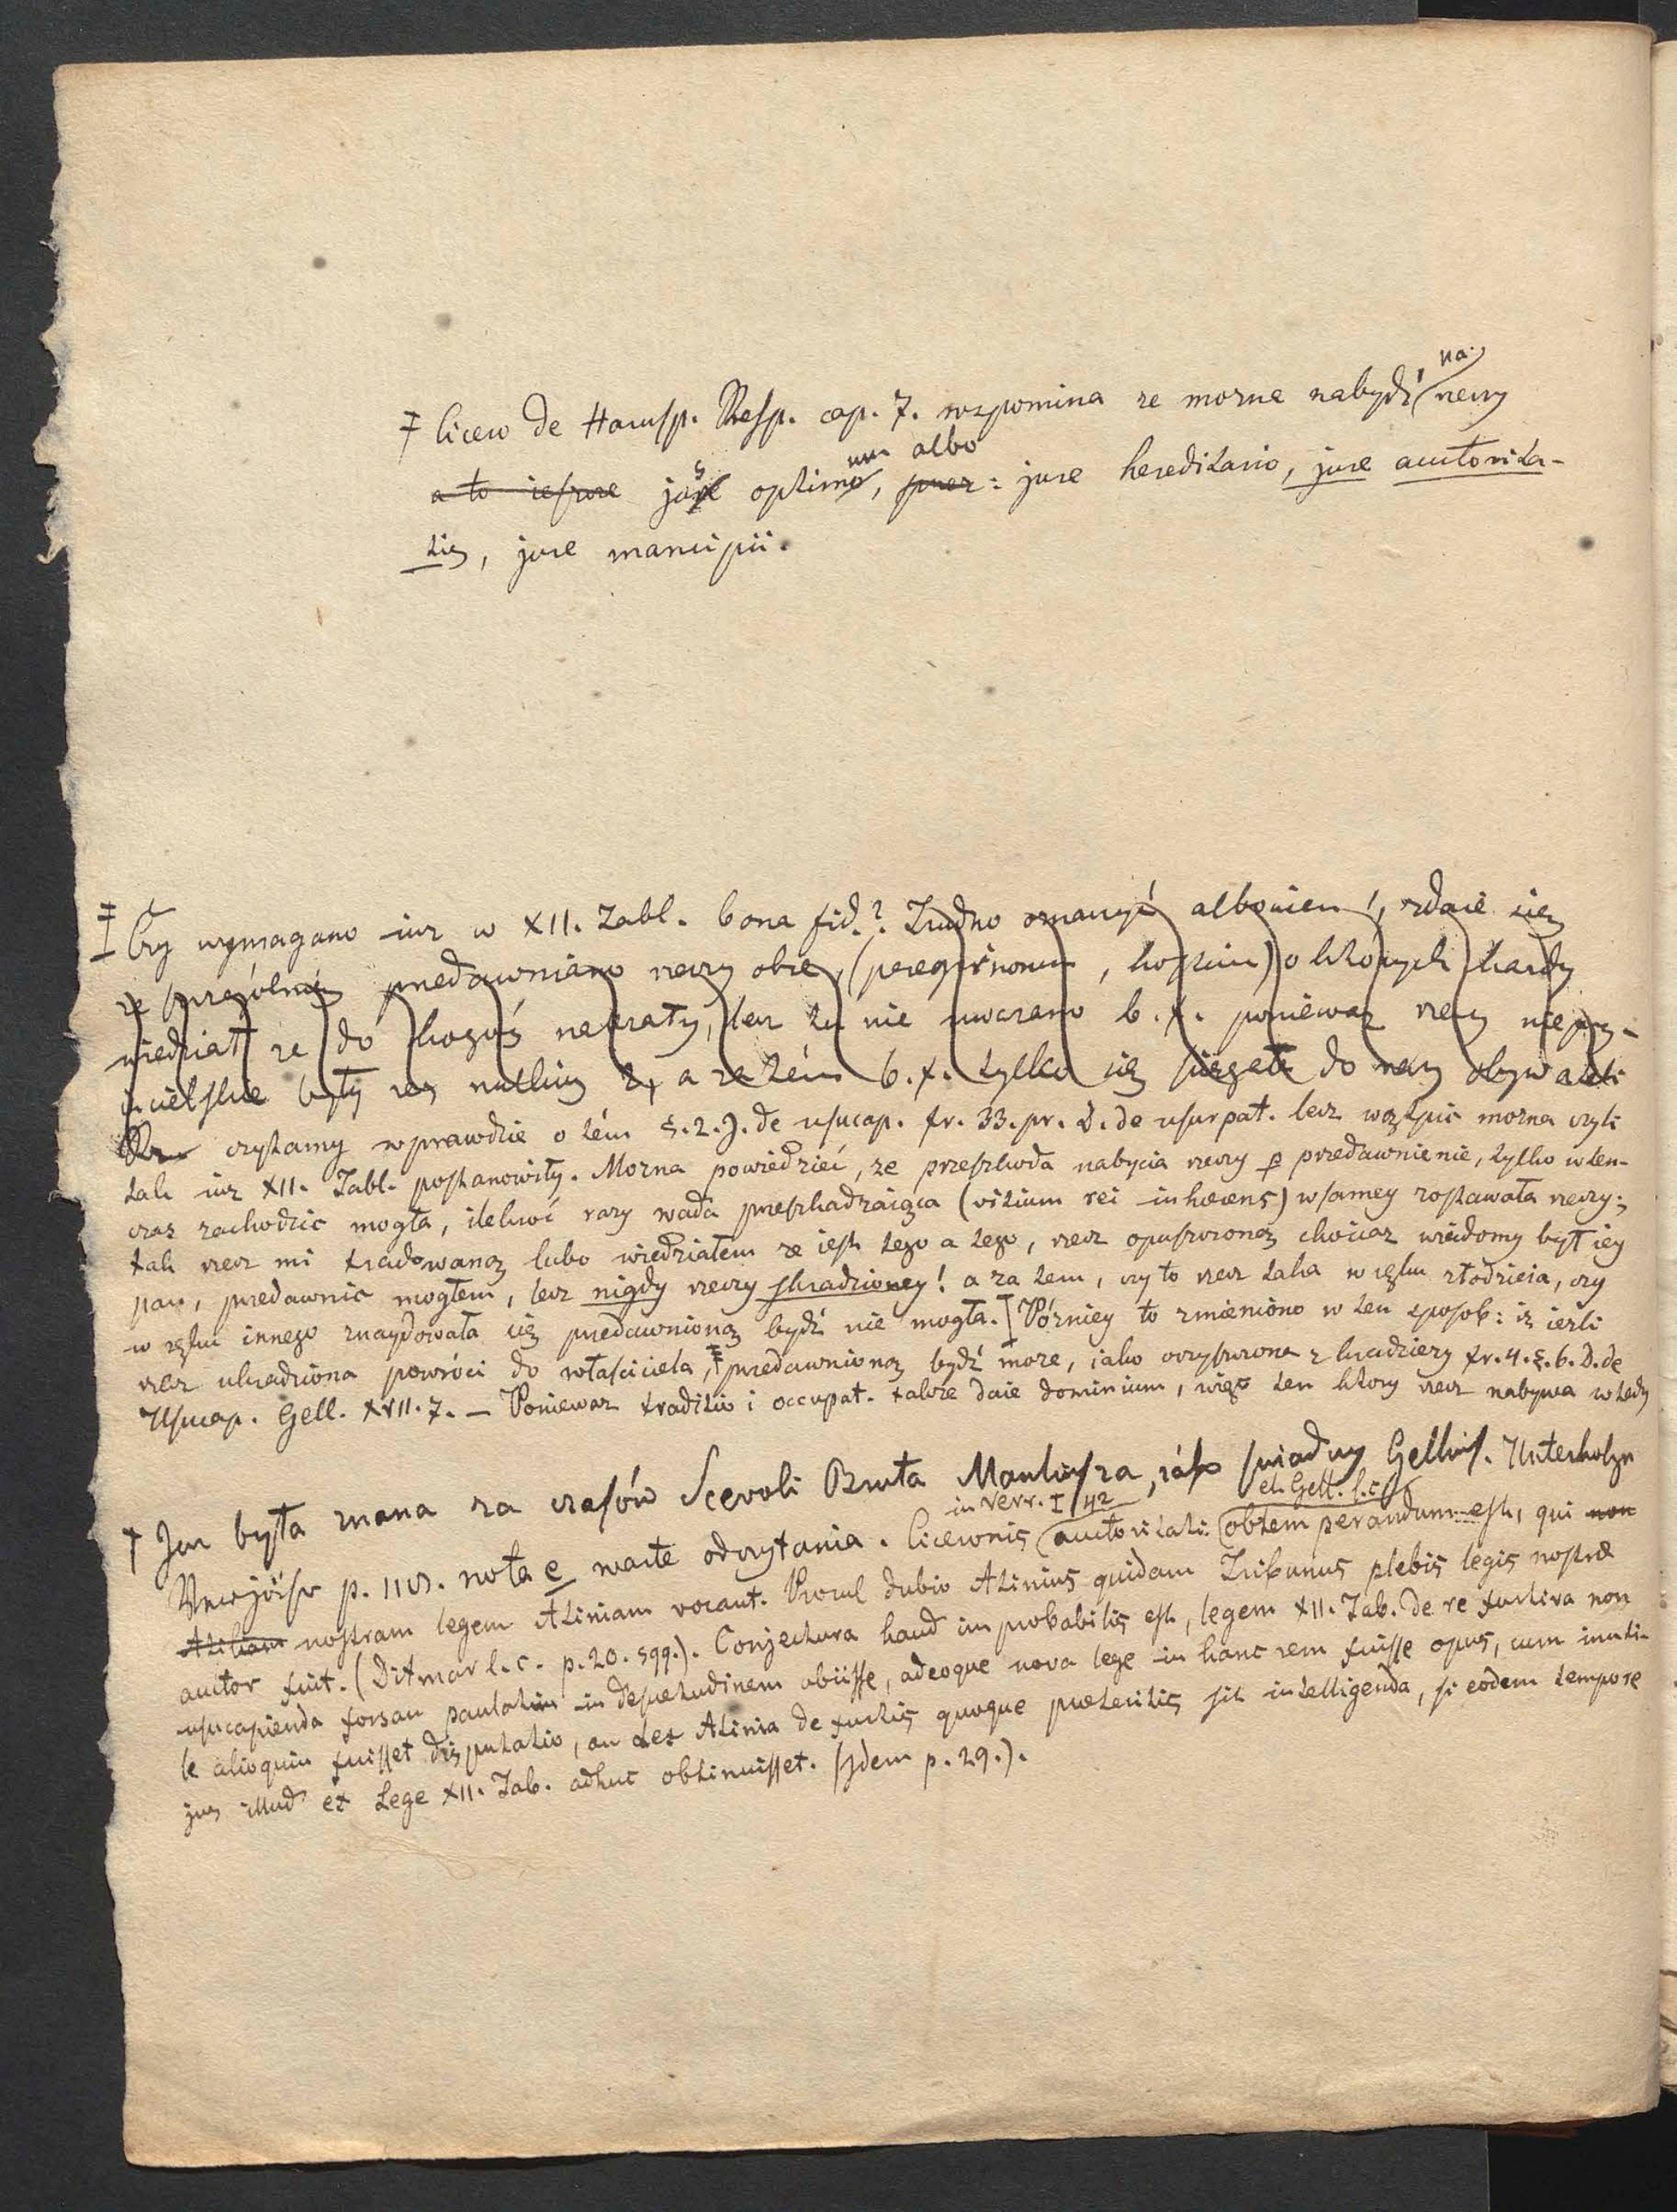 na
‡ Cicero de Harusp. Resp. cap. 7. wspomina ze mozna nabydź rzeczy
um albo
a to jus optimo, jure hereditario, jure auctorita-
tis, jure mancipii.
‡ Czy wymagano iuz w XII. Tabl. bona fid.? Trudno oznaczyć albowiem, zdaie się
ze szczególniey przedawniano rzeczy obce, (peregrinorum, hostium) o których kazdy
wiedział ze do kogoś nalezały, lecz tu nie uwazano b. f. poniewaz rzeczy nieprzy-
iacielskie były res nullius, a zatém b. f. tylko się sięgała do rzeczy obywateli
czytamy wprawdzie o tém §. 2. J. de usucap. fr. 33. pr. D. de usurpat. lecz wątpić mozna czyli
tak iuz XII. Tabl. postanowiły. Mozna powiedzieć, ze przeszkoda nabycia rzeczy p przedawnienie, tylko wten-
czas zachodzic mogła, ilekroć razy wada przeszkadzaiąca (vitium rei inhaerens) w samey zostawała rzeczy;
tak rzecz mi tradowaną lubo wiedziałem ze iest tego a tego, rzecz opuszczoną chociaz wiadomy był iey
pan, przedawnic mogłem, lecz nigdy rzeczy skradzioney! a za tem, czy to rzecz taka w ręku złodzieia, czy
w ręku innego znaydowała się przedawnioną bydź nie mogła. [Pózniey to zmieniono w ten sposob: iz iezli
rzecz ukradziona powróci do właściciela, ‡ przedawnioną bydź moze, iako oczyszczona z kradziezy fr. 4. §. 6. D. de
Usucap. Gell. XVII. 7. – Poniewaz traditio i occupat. takze daie dominium, więc ten ktory rzecz nabywa wtedy
† Jan była znana za czasów Scevoli Bruta Manliusza, iáko swiadczy Gellius. Unterholzn
in Verr. I 42 et Gell. l. c.
p. 110. nota e warte odczytania. Ciceronis auctoritati obtemperandum est, qui non
Atiliam nostram legem Atiniam vocant. Procul dubio Atinius quidam Tribunus plebis legis nostrae
auctor fuit. (Ditmar l. c. p. 20. sqq.). Conjectura haud improbabilis est, legem XII. Tab. de re furtiva non
usucapienda forsan paulatim in desuetudinem abiisse, adeoque nova lege in hanc rem fuisse opus, cum inuti-
le alioquin fuisset disputatio, an Lex Atinia de furtis quoque praeteritis sit intelligenda, si eodem tempore
jus illud ex Lege XII. Tab. adhuc obtinuisset. (Idem p. 29.).